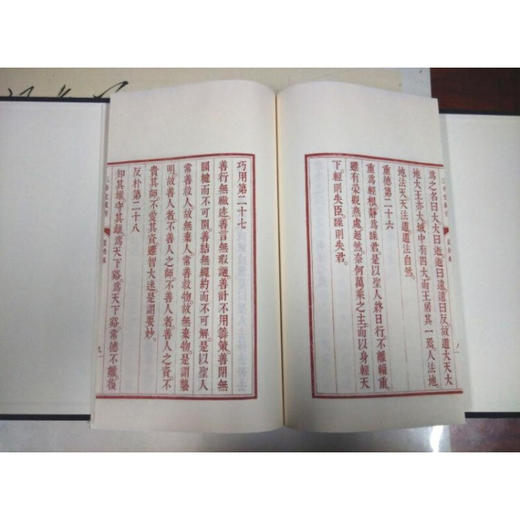 爲之名曰大大曰逝逝曰遠遠曰反故道大天大
地大王亦大域中有四大而王居其一焉人法地
地法天天法道道法自然
重德第二十六
重爲輕根靜爲躁君是以聖人終日行不離輜重
雖有榮觀燕處超然奈何萬乘之主而以身輕天
下輕則失臣躁則失君
巧用第二十七
善行無轍迹善言無瑕讁善計不用籌策善閉無
關楗而不可開善結無繩約而不可解是以聖人
常善救人故無棄人常善救物故無棄物是謂襲
明故善人者不善人之師不善人者善人之資不
貴其師不愛其資雖智大迷是謂要妙
反朴第二十八
知其雄守其雌爲天下谿爲天下谿常德不離復